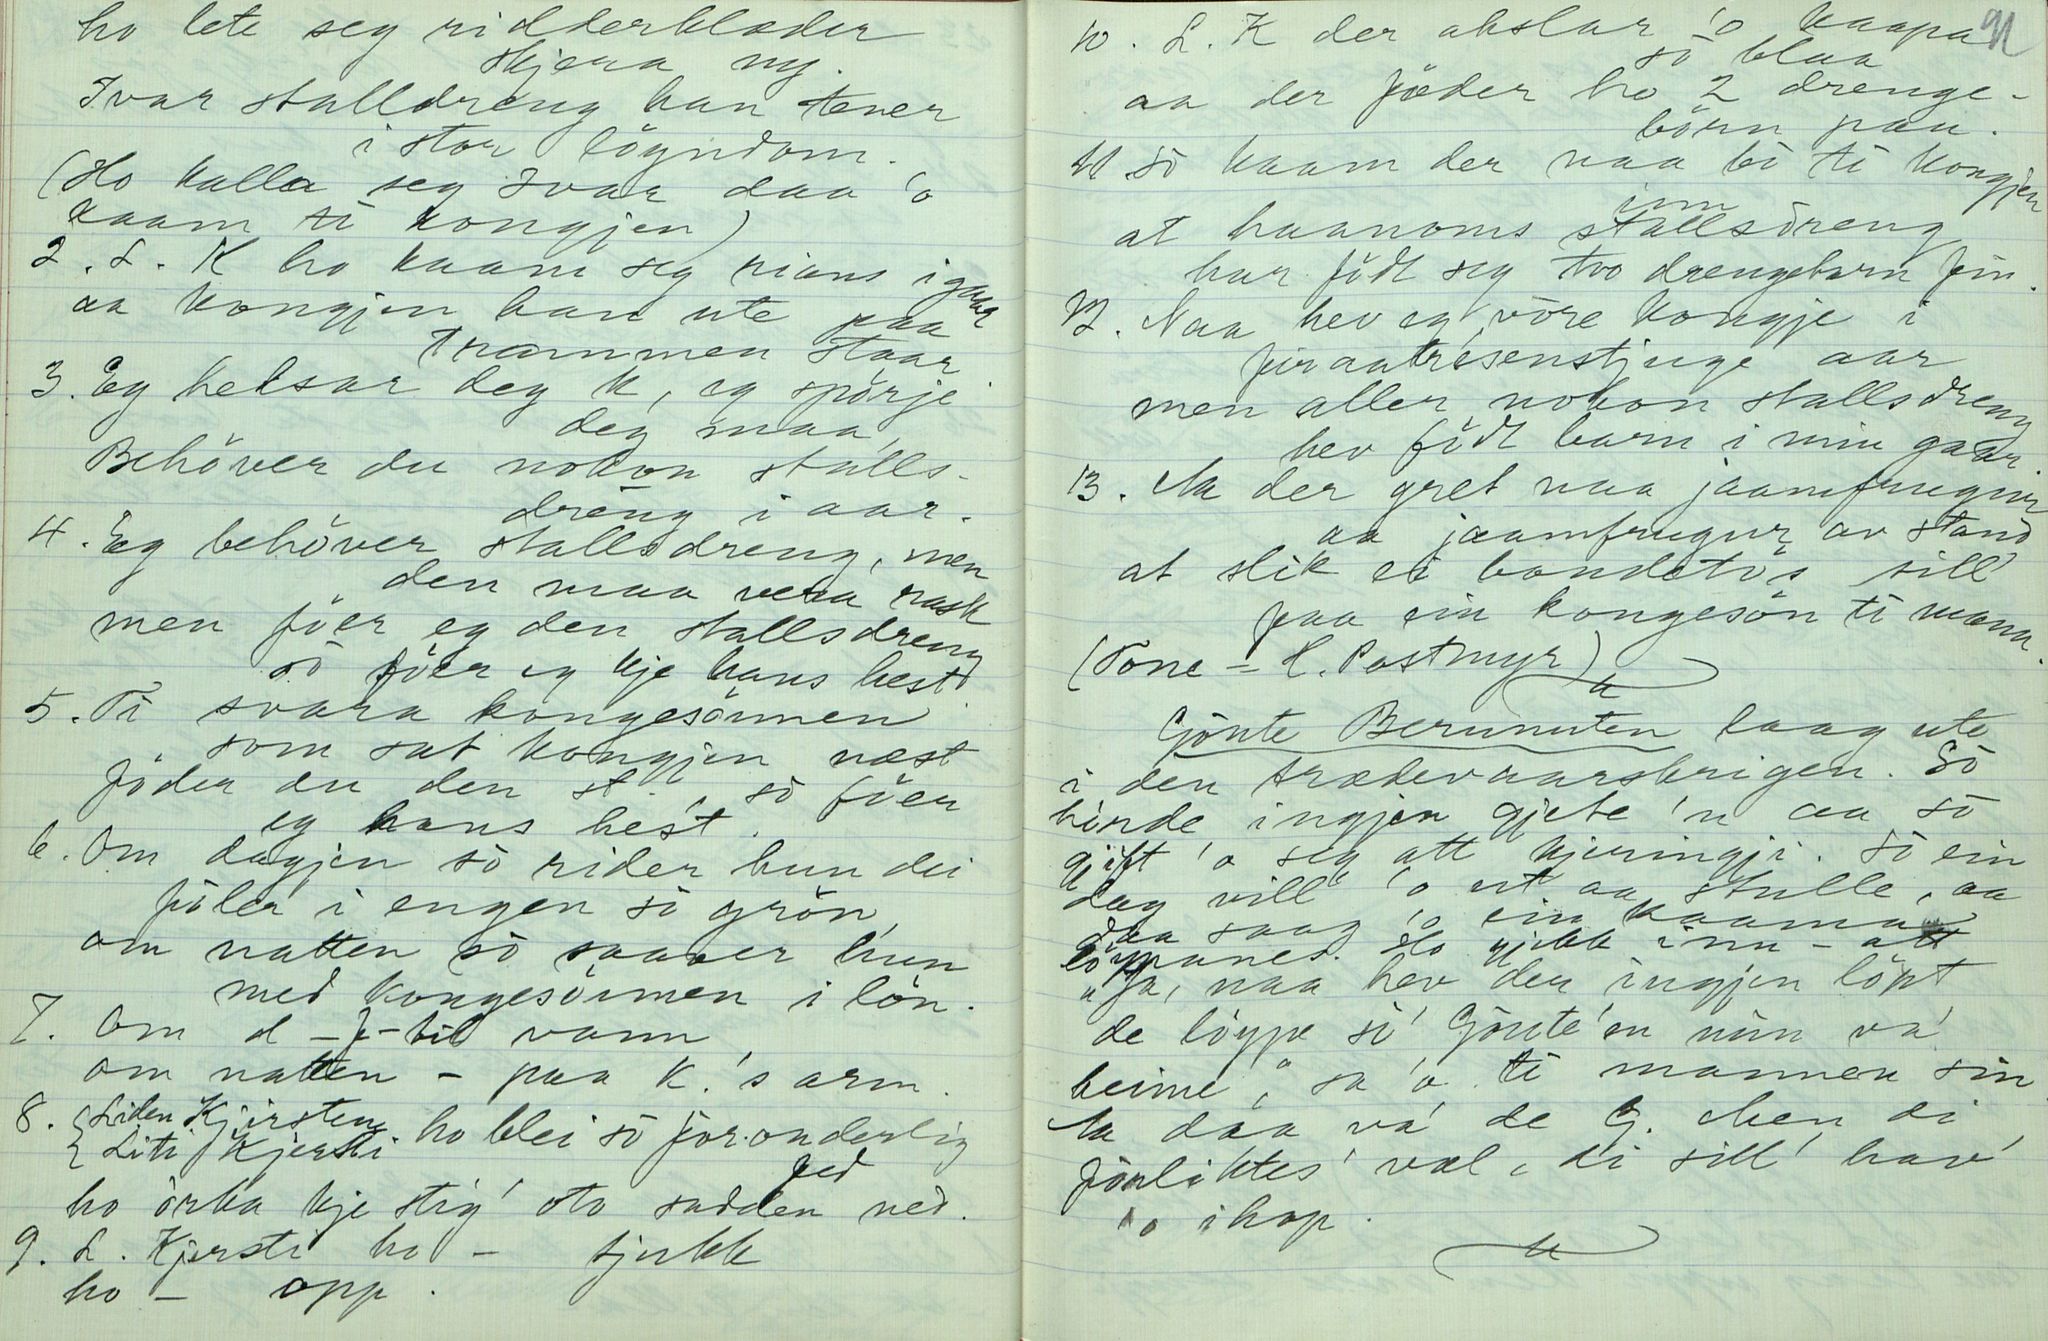 ho lete seg ridderklæder
skjera ny.
Ivar stalldreng han tener
i stor löyndom.
(Ho kalla seg Ivar daa 'o
kaam ti kongjen)
2. L. K ho kaam seg rians i gaar
aa kongjen han ute paa
trammen staar
3. Eg helsar deg K, eg spörje
deg maa,
Behöver du nokon stalls-
dreng i aar.
4. Eg behöver stallsdreng, men
den maa vera rask
men föer eg den stallsdreng
so föer eg kje hans hest
5. Ti svara kongesönnen
som sat kongjen næst
föder du den st., so föer
eg hans hest.
6. Om dagjen so rider hun dei
foler i engen so grön
om natten so saaver hun
med kongesönnen i lön.
7. Om d - f - til vann
om natten - paa K.'s arm
8. {Liden Kjirsten ho blei so foronderlig
{Liti Kjersti
fed
ho orka kje stig' oto sadden ned.
9. L. Kjersti ho - tjukk
ho - opp.
91
10. L. K der akslar 'o kaapa
so blaa
aa der föder ho 2 drenge-
börn paa.
11 so kaam der naa bo ti kongjen
inn
at haanoms stallsdreng
har födt seg tvo drengebarn fin.
12. Naa hev eg vöre kongje i
firaatrésenstjuge aar
men aller nokon stallsdreng
hev födt barn i min gaar.
13. Aa der gret naa jaamfrugur
aa jaamfrugur av stand
at slik ei bondetös sill'
faa ein kongesön ti mann.
(Tone = H. Postmyr)
Gjönte Berunuten laag ute
i den trædevaarskrigen. So
hende ingjen gjete 'n aa so
gift 'o seg att kjeringji. So ein
dag vill 'o ut aa stulle, aa
daa saag 'o ein kaama
löypanes. Ho gjekk inn - att
"Ja, naa hev der ingjen löpt
de löype si' Gönte'en min va'
heime", sa 'o ti mannen sin
Aa daa va' de G. Men di
forliktes' væl, di sill' hav'
'o ihop.